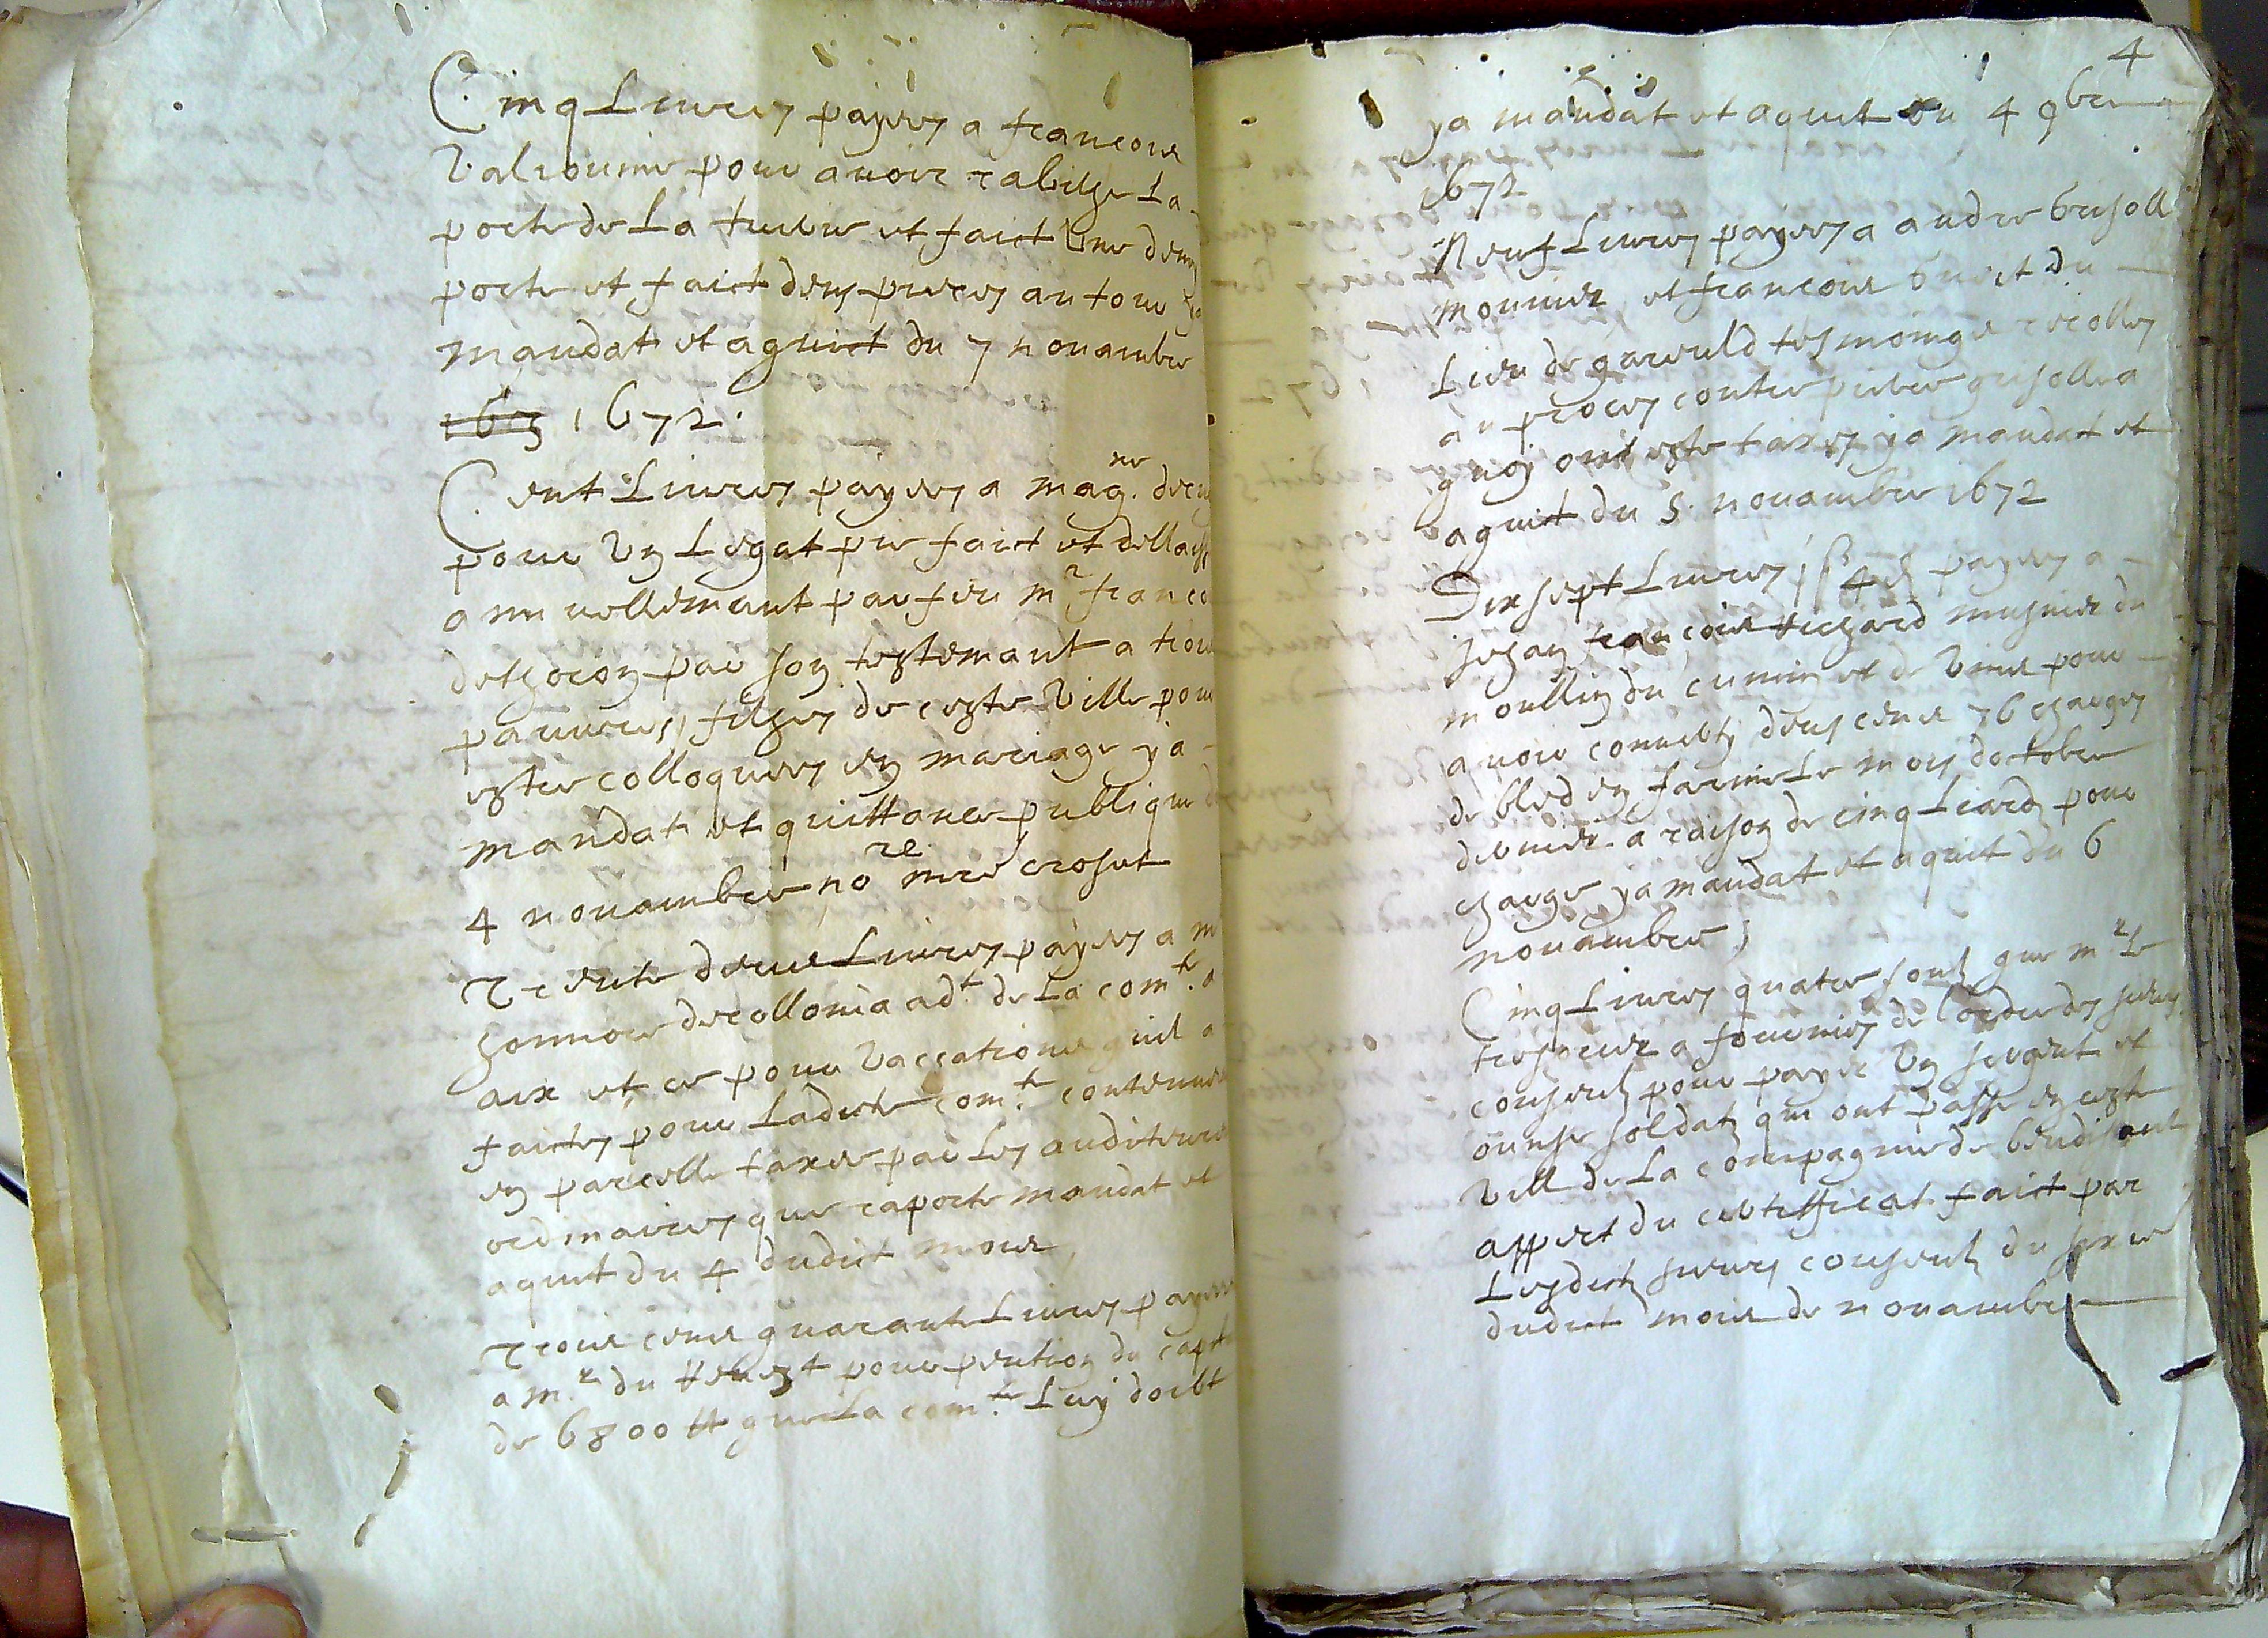 Cinq Livres payées a francois
pour avoir rabilhe La
porte de La et faict Une demy
porte et faict deux pieces au tour ya
mandat et aquict du 7 novambre
1673 1672.
Cent Livres payées a mag.ne
pour Un Legat pie faict et
annuellemant par feu mr franco
par son testemant a
pauvres filhes de ceste Ville pour
estre colloquées en mariage ya
mandat et quittance publique
4 novambre nore mre croset
Trente deux Livres payées a m
honnore decollonia adt. de La comte. a
aix et ce pour vaccations quil a
faictes pour Ladicte comte. contenues
en parcelle taxée par Les auditeurs
ordinaires que raporte mandat et
aquit du 4 dudict mois
Trois cens quarante Livres payées
a mr. du pour pention du
de 6800 ₶ que La comte. Luy doibt
4
ya mandat et aquit du 4 9bre
1672
Neuf Livres payées a andre
mounier et francois du
Lieu de tesmoings recollés
au procés contre
quoy ont esté taxes ya mandat et
aquict du 5 novambre 1672
Dix sept Livres payées a
Jehan francois Richard musnier du
moullin du et de pour
avoir converty deux cens 76 charges
de bled en farine Le mois doctobre
dernier a raison de cinq Liards pour
charge ya mandat et aquit du 6
novambre
Cinq Livres quatre souls que mr Le
tresorier a fournies de lordre des sieurs
consuls pour payer Un sergent et
ounse soldats qui ont passe en ceste
Ville de La compagnie de
appert du certifficat faict par
Lesdicts sieurs consuls du
dudict mois de novambre